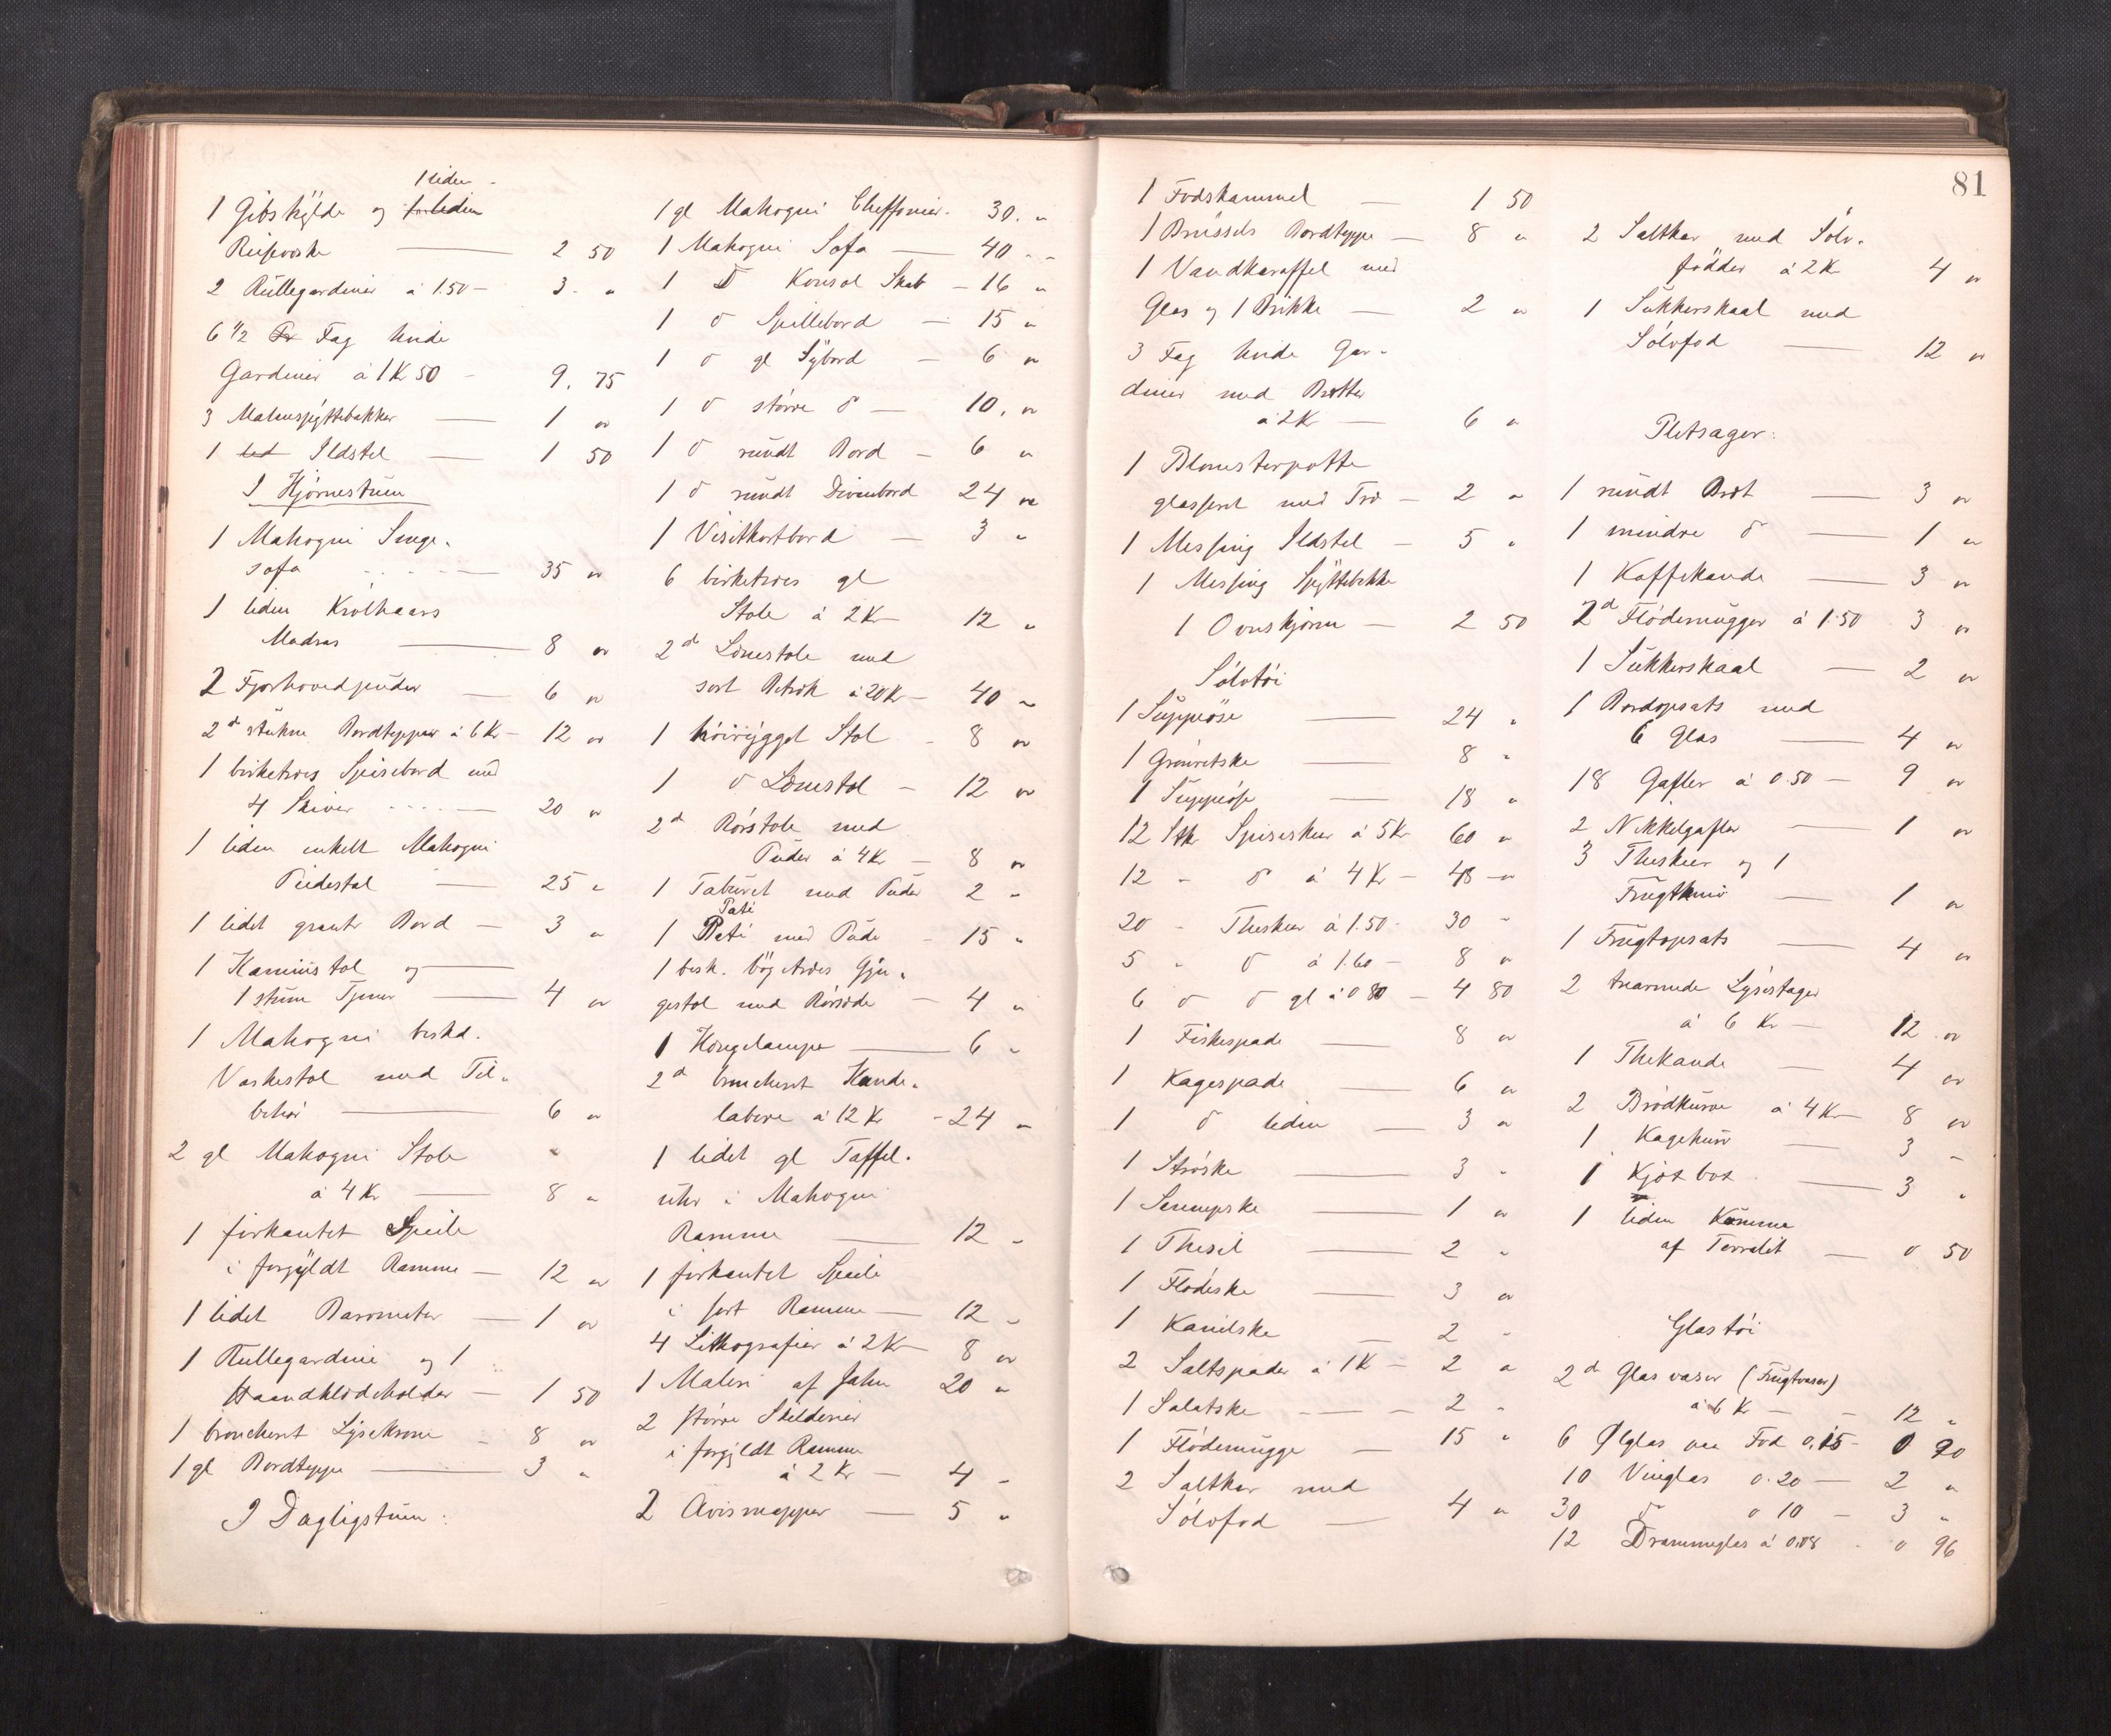 1 liden
1 Gibshylde og <s>1 liden</s>
Reiseveske — 2 50
2 Rullegardiner à 1.50 — 3 "
6 1/2 <s>Pr</s> Fag hvide
Gardiner à 1 Kr 50 - 9. 75
3 Malmspyttebakker — 1 "
1 <s>led</s> Ildstel — 1 50
I Hjørnestuen
1 Mahogni Senge-
sofa — 35 "
1 liden Krølhaars
Madras — 8 "
2 Fjærhovedpuder — 6 "
2d strikne Bordtepper à 6 Kr — 12 "
1 birketræs Spisebord med
4 Skiver — 20 "
1 liden enkelt Mahogni
Pidestal — 25 "
1 lidet graat Bord — 3 "
1 Kaminstol og —
1 stum Tjener — 4 "
1 Mahogni beskd.
Vaskestol med Til-
behør — 6 "
2 gl Mahogni Stole
à 4 Kr — 8 "
1 firkantet Speile
i forgyldt Ramme — 12 "
1 lidet Barometer — 1 "
1 Rullegardine og 1
Haandklædeholder — 1 50
1 broncheret Lysekrone - 8 "
1 gl Bordteppe — 3 "
I Dagligstuen:
1 gl Mahogni Cheffonier. 30. "
1 Mahogni Sofa — 40 "
1 D Konsol Skab — 16 "
1 d Spillebord — 15 "
1 d gl Sybord — 6 "
1 d større d — 10. "
1 d rundt Bord — 6 "
1 d rundt Divanbord 24 "
1 Visitkortbord — 3 "
6 birketræs gl
Stole à 2 Kr — 12 "
2d Lænestole med
sort Betræk à 20 Kr — 40 "
1 høirygget Stol - 8 "
1 d Lænestol - 12 "
2d Rørstole med
Puder à 4 Kr — 8 "
1 Taburet med Puder 2 "
Paté
1 Paté med Pude - 15 "
1 besk. bøgetræs Gyn-
gestol med Rørsæde - 4 "
1 Hængelampe — 6 "
2d broncheret Kande-
labere à 12 Kr - 24 "
1 lidet gl Taffel-
uhr i Mahogni
Ramme — 12 "
1 firkantet Speile
i sort Ramme — 12 "
4 Lithografier à 2 Kr 8 "
1 Maleri af Jahn 20 "
2 større Skilderier
i forgyldt Ramme
à 2 Kr — 4 "
2 Avismapper — 5 "
81
1 Fodskammel — 1 50
1 Brüssels Bordteppe — 8 "
1 Vandkaraffel med
Glas og 1 Brikke — 2 "
3 Fag hvide Gar-
diner med Bretter
à 2 Kr — 6 "
1 Blomsterpotte
glasseret med Træ — 2 "
1 Messing Ildstel — 5 "
1 Messing Spyttebakke
1 Ovnskjærm — 2 50
Sølvtøi
1 Suppeøse — 24 "
1 Grønretske — 8 "
1 Suppeøse — 18 "
12 Stk Spiseskeer à 5 Kr 60 "
12 - d à 4 Kr — 48 "
20 - Theskeer à 1.50 - 30 "
5 - d à 1.60 — 8 "
6 d d gl à 0 80 — 4 80
1 Fiskespade — 8 "
1 Kagespade — 6 "
1 d liden — 3 "
1 Strøske — 3 "
1 Sennepske — 1 "
1 Thesil — 2 "
1 Flødeske — 3 "
1 Kanilske — 2 "
2 Saltspader à 1 K — 2 "
1 Salatske — 2 "
1 Flødemugge — 15 "
2 Saltkar med
Sølvfod — 4 "
2 Saltkar med Sølv-
fødder à 2 Kr 4 "
1 Sukkerskaal med
Sølvfod — 12 "
Pletsager:
1 rundt Bret — 3 "
1 mindre d — 1 "
1 Kaffekande — 3 "
2d Flødemugger à 1.50 3 "
1 Sukkerskaal — 2 "
1 Bordopsats med
6 Glas — 4 "
18 Gafler à 0.50 — 9 "
2 Nikkelgafler — 1 "
3 Theskeer og 1
Frugtkniv — 1 "
1 Frugtopsats — 4 "
2 toarmede Lysestager
à 6 Kr — 12 "
1 Thekande — 4 "
2 Brødkurve à 4 Kr — 8 "
1 Kagekurv — 3 "
1 Kjøxbox — 3 "
1 liden Kumme
af Terralit — 0 50
Glastøi
2d Glasvaser (Frugtvaser)
à 6 Kr — 12 "
6 Ølglas paa Fod 0.15 — 0 90
10 Vinglas 0.20 — 2 "
30 d 0 10 — 3 "
12 Drammeglas à 0.08 - 0 96